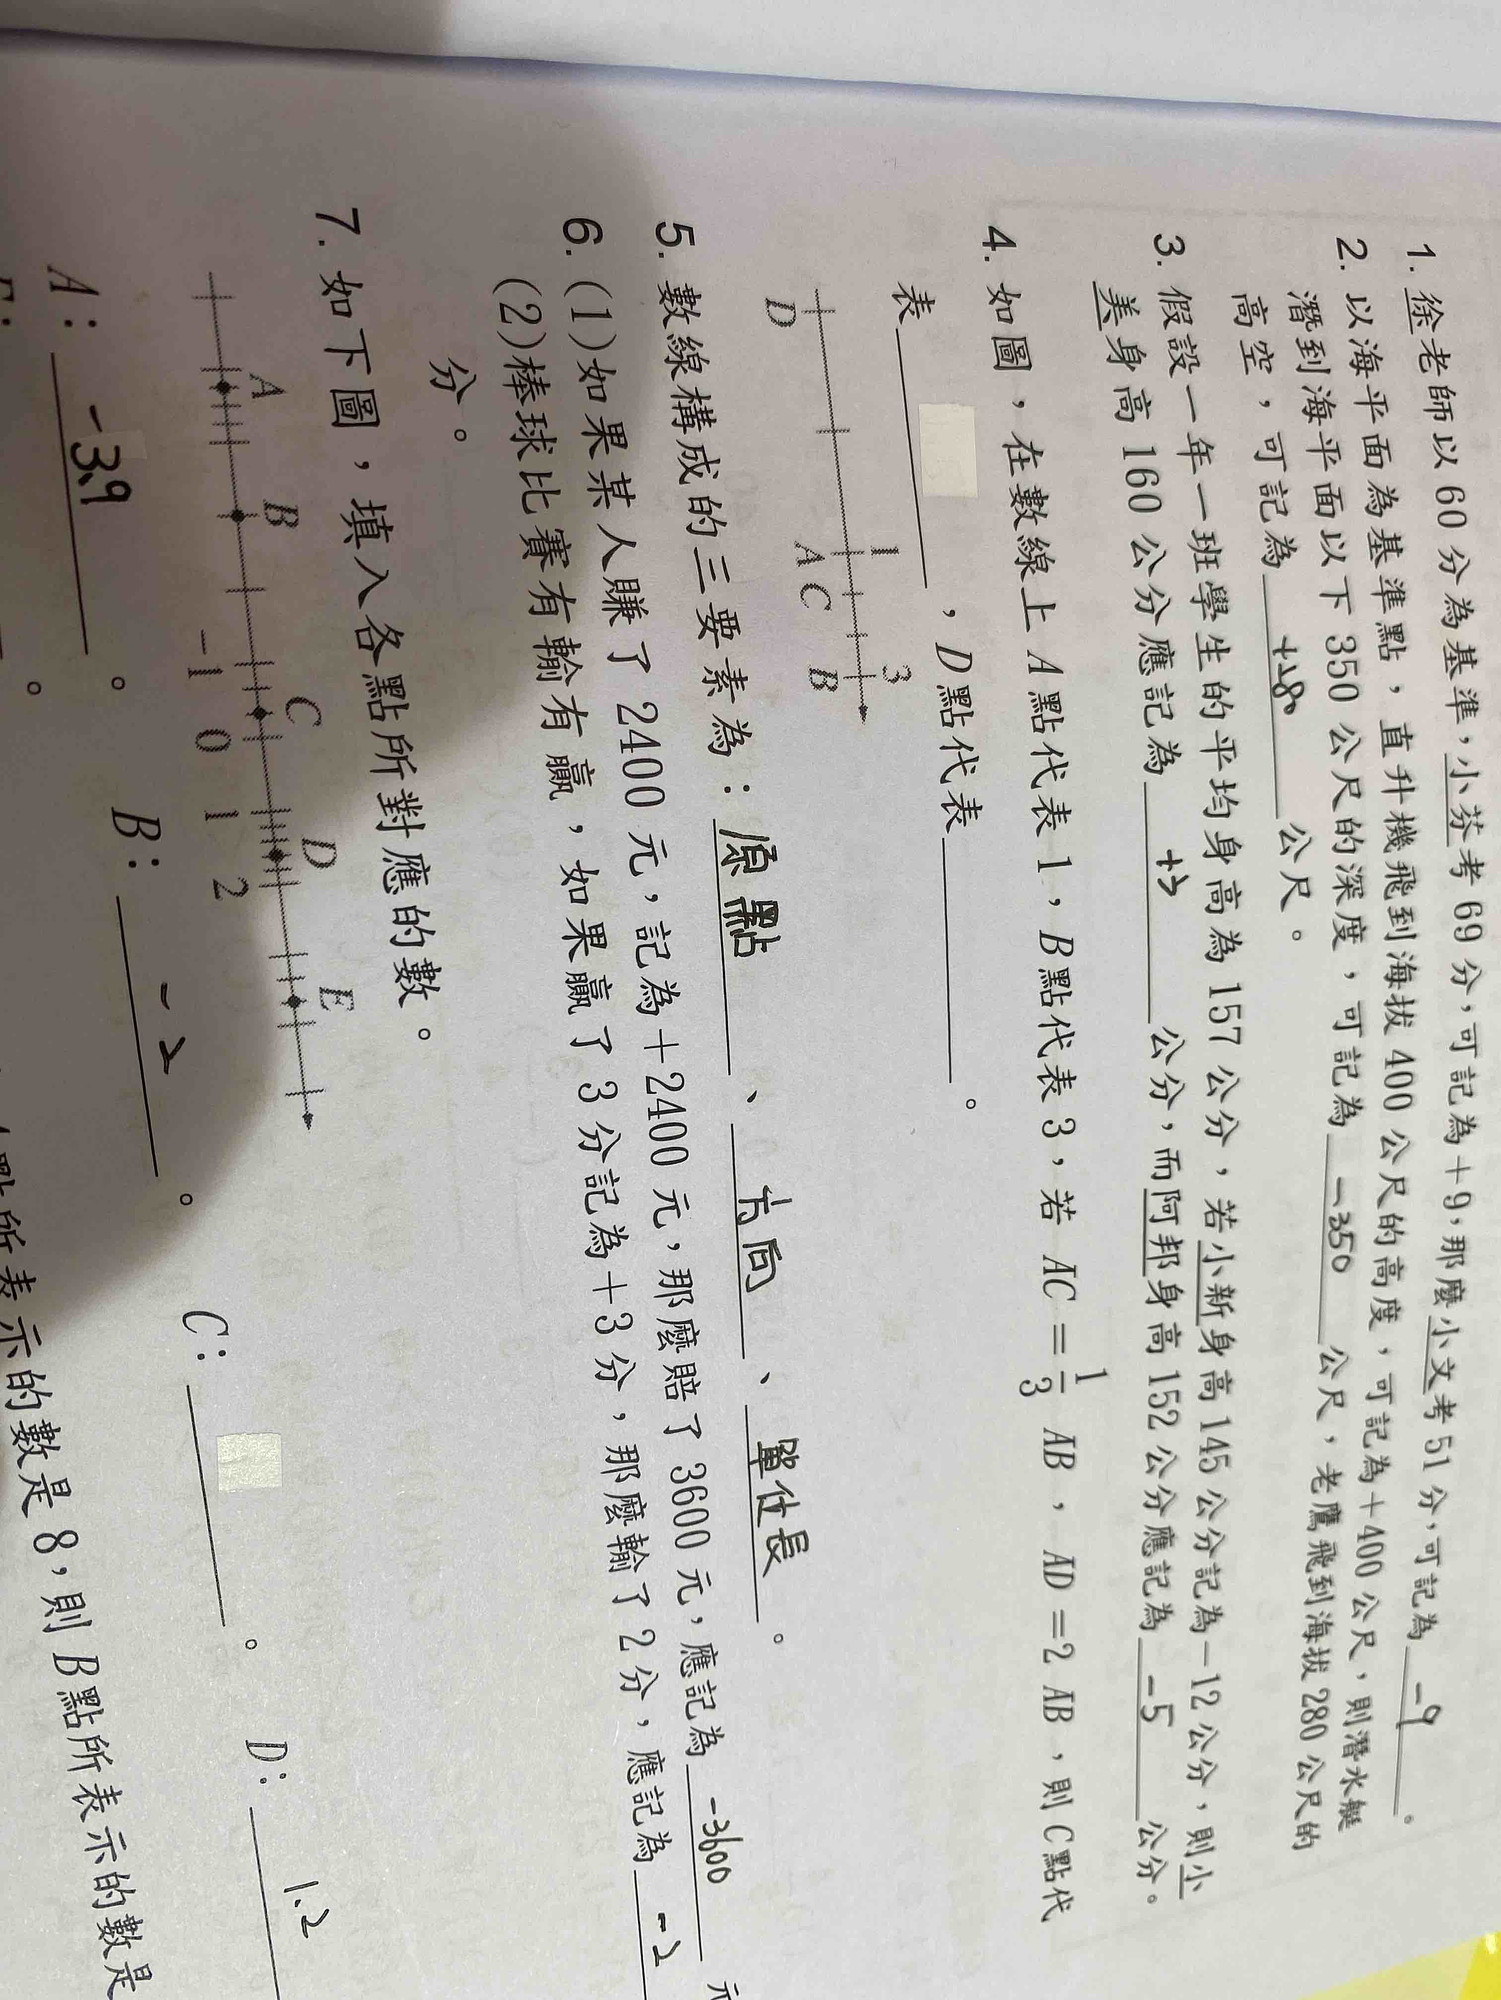 1. 徐老師以60分為基準，小芬考69分，可記為＋9，那麼小文考51分，可記為 －9 。
2. 以海平面為基準點，直升機飛到海拔400公尺的高度，可記為＋400公尺，則潛水艇
潛到海平面以下350公尺的深度，可記為 －350 公尺，老鷹飛到海拔280公尺的
高空，可記為 公尺。
3. 假設一年一班學生的平均身高為157公分，若小新身高145公分記為－12公分，則小
美身高160公分應記為 +3 公分，而阿邦身高152公分應記為 －5 公分。
4. 如圖，在數線上A點代表1，B點代表3，若 AC＝1/3 AB，AD＝2 AB，則C點代
表 ，D點代表 。
1 3
D A C B
5. 數線構成的三要素為： 原點 、 方向 、 單位長 。
6. (1)如果某人賺了2400元，記為＋2400元，那麼賠了3600元，應記為 －3600 元
(2)棒球比賽有輸有贏，如果贏了3分記為＋3分，那麼輸了2分，應記為 －2
分。
7. 如下圖，填入各點所對應的數。
A B C D E
－1 0 1 2
A： －3.9 。 B： －2 。 C： 。 D： 1.2
點所表示的數是8，則B點所表示的數是